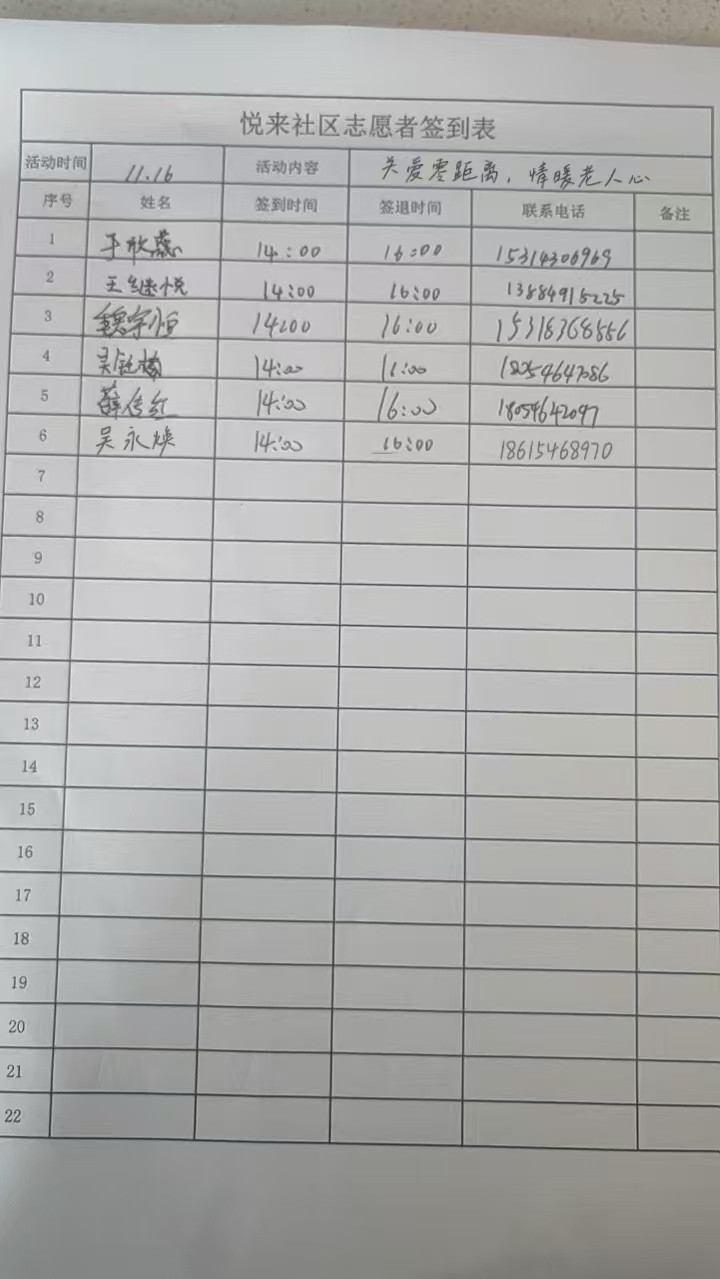 悦来社区志愿者签到表
活动时间 11.16 活动内容 关爱零距离，情暖老人心
序号 姓名 签到时间 签退时间 联系电话 备注
1 于欣蕊 14:00 16:00 15314306969
2 王继悦 14:00 16:00 13884915225
3 魏宇恒 14:00 16:00 15318368886
4 14:00 11:00 18254647086
5 薛传红 14:00 16:00 18054642097
6 吴永焕 14:00 16:00 18615468970
7
8
9
10
11
12
13
14
15
16
17
18
19
20
21
22